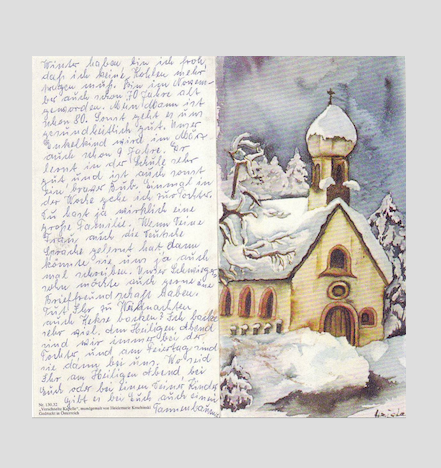 Winter haben bin ich froh,
daß ich keine Kohlen mehr
tragen muß. Bin im Novem-
ber auch schon 70 Jahre alt
geworden. Mein Mann ist
schon 80. Sonst geht es uns
gesundheitlich gut. Unser
Enkelkind wird im März
auch schon 9 Jahre. Er
lernt in der Schule sehr
gut und ist auch sonst
ein braver Bub. Einmal in
der Woche gehe ich zur Tochter.
Du hast ja wirklich eine
große Familie. Wenn Deine
Frau auch die deutsche
Sprache gelernt hat dann
könnte sie uns ja auch
mal schreiben. Unser Schwieger-
sohn möchte auch gerne eine
Brieffreundschaft haben.
Tut Ihr zu Weihnachten
auch Kekse backen? Ich backe
sehr viel. Am Heiligen Abend
sind wir immer bei der
Tochter, und am Feiertag sind
sie dann bei uns. Wo seid
Ihr am Heiligen Abend, bei
Euch oder bei einem Deiner Kinder
gibt es bei Euch auch einen
Tannenbaum
Nr. 130.32
„Verschneite Kapelle", mundgemalt von
Gedruckt in Österreich